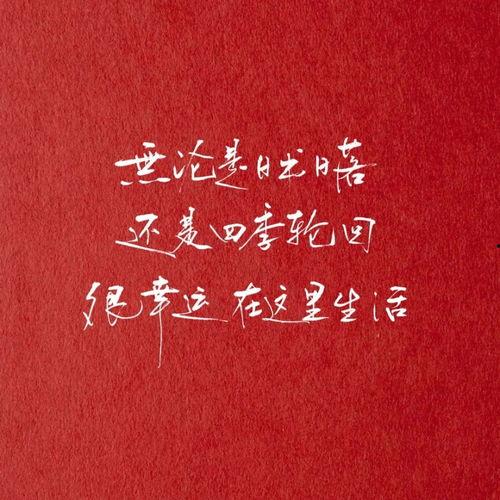 無论是日出日落
还是四季轮回
很幸运在这里生活